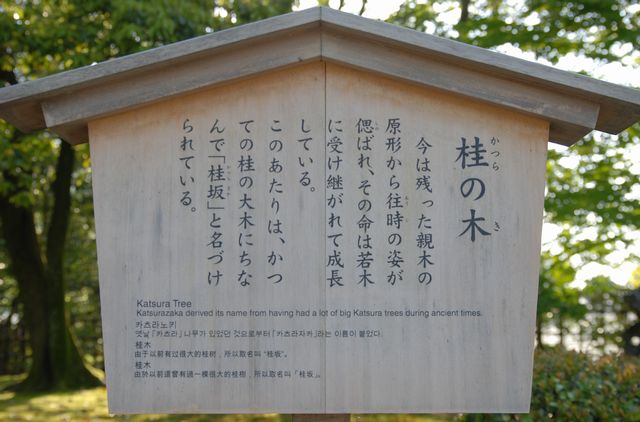 桂の木
今は残った親木の
原形から往時の姿が
偲ばれ、その命は若木
に受け継がれて成長
している。
このあたりは、かつ
ての桂の大木にちな
んで「桂坂」と名づけ
られている。
Katsura Tree
Katsurazaka derived its name from having had a lot of big Katsura trees during ancient times.
카츠라노키
옛날 「카츠라」 나무가 있었던 것으로부터 「카츠라자카」라는 이름이 붙었다.
桂木
由于以前有过很大的桂树，所以取名叫“桂坂”。
桂木
由於以前這曾有過一棵很大的桂樹，所以取名叫「桂坂」。